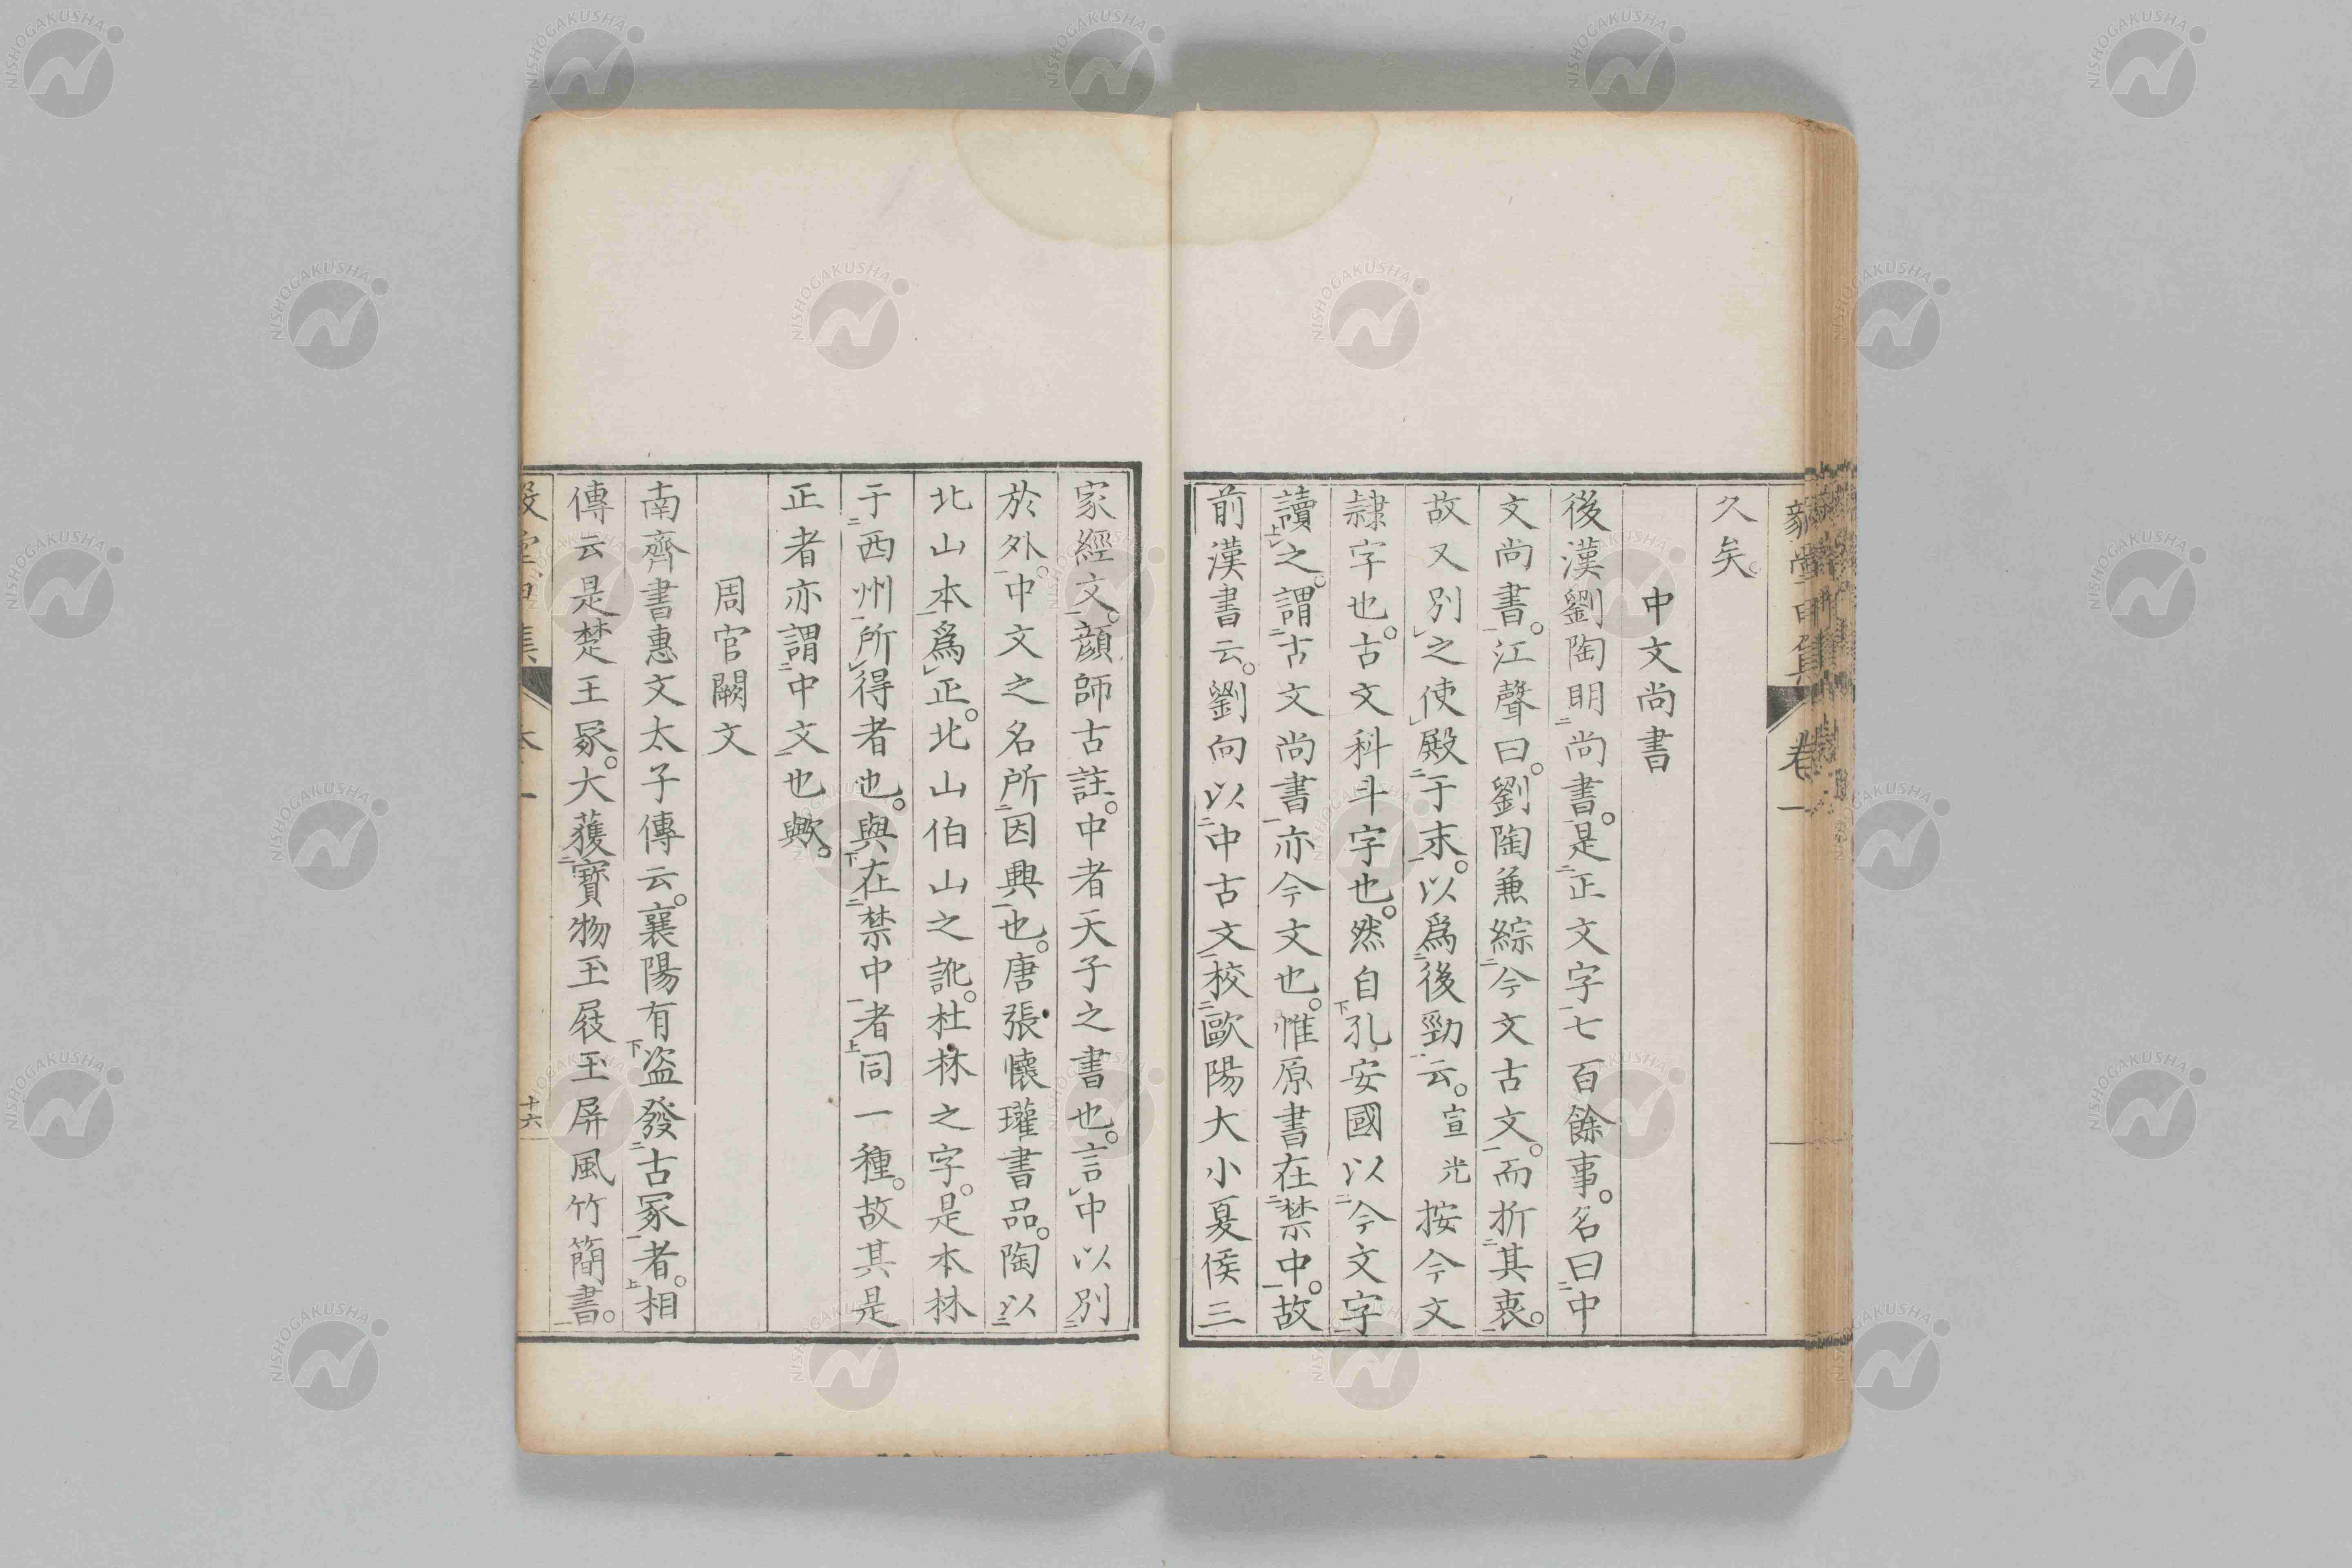 卷一
久矣。
中文尚書
後漢劉陶明尚書。是正文字七百餘事。名曰中
文尚書。江聲曰。劉陶兼綜今文古文。而折其衷。
故又別之使殿于末。以爲後勁云。宣光按今文
隷字也。古文科斗字也。然自孔安國以今文字
讀之。謂古文尚書亦今文也。惟原書在禁中。故
前漢書云。劉向以中古文校歐陽大小夏侯三
家經文。顔師古註。中者天子之書也。言中以別
於外。中文之名所因興也。唐張懷瓘書品。陶以
北山本爲正。北山伯山之訛。杜林之字。是本林
于西州所得者也。與在禁中者同一種。故其是
正者亦謂中文也歟。
周官闕文
南齊書惠文太子傳云。襄陽有盗發古冢者。相
傳云是楚王冢。大獲寶物玉屐玉屏風竹簡書。
十六
NISHOGAKUSHA